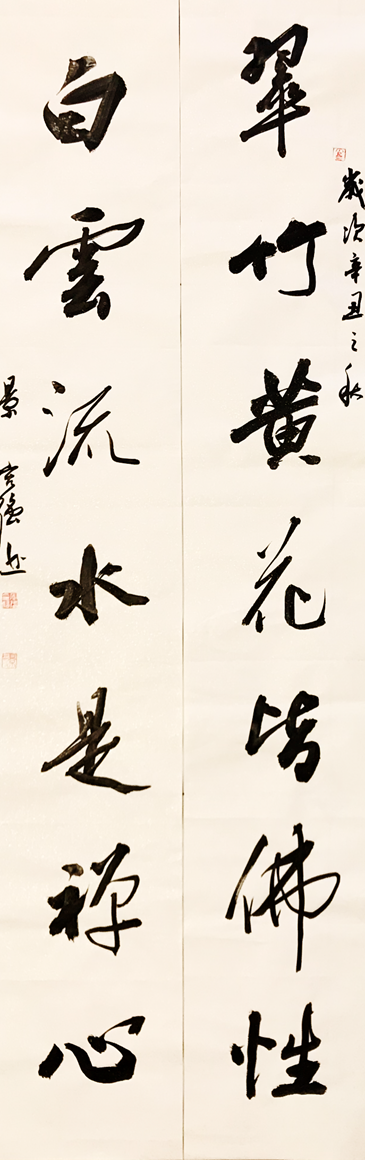 歲次辛丑之秋
翠竹黄花皆佛性
白雲流水是禅心
景